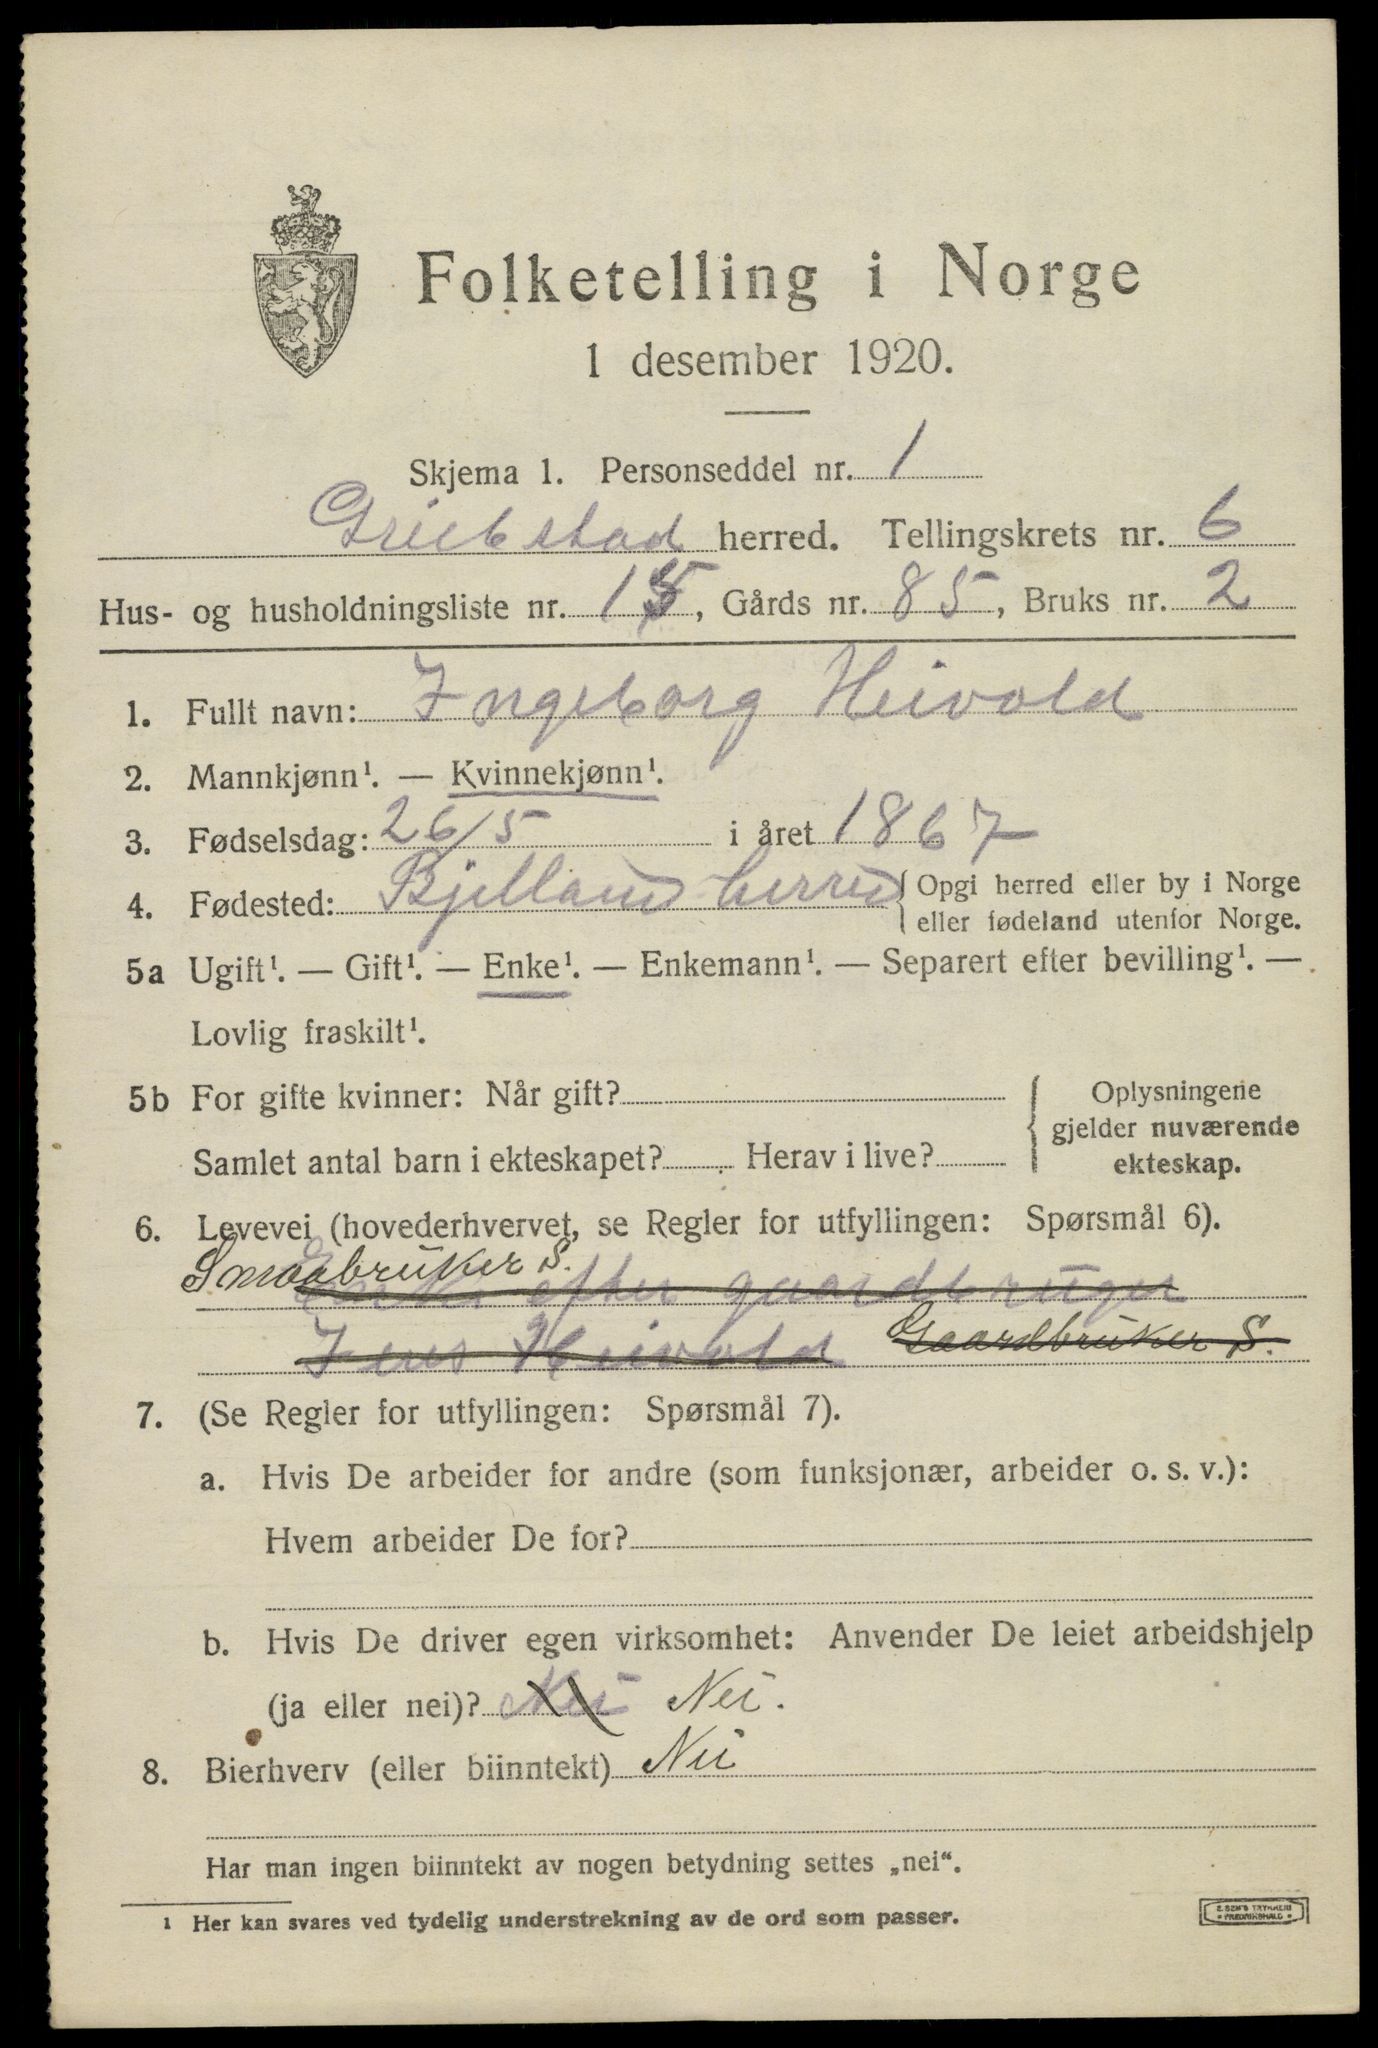 Folketelling i Norge
1 desember 1920.
Skjema 1. Personseddel nr. 1
Greibstad herred. Tellingskrets nr. 6
Hus- og husholdningsliste nr. 15, Gårds nr. 85, Bruks nr. 2
1. Fullt navn: Ingeborg Heivold
2. Mannkjønn¹. — Kvinnekjønn¹.
3. Fødselsdag: 26/5 i året 1867
4. Fødested: Bjelland herred { Opgi herred eller by i Norge
eller fødeland utenfor Norge.
5a Ugift¹. — Gift¹. — Enke¹. — Enkemann¹. — Separert efter bevilling¹. —
Lovlig fraskilt¹.
5b For gifte kvinner: Når gift?
Samlet antal barn i ekteskapet? Herav i live?
{ Oplysningene
gjelder nuværende
ekteskap.
6. Levevei (hovederhvervet, se Regler for utfyllingen: Spørsmål 6).
Smaabruker S.
Enke efter gaardbruger
Jens Heivold Gaardbruker S.
7. (Se Regler for utfyllingen: Spørsmål 7).
a. Hvis De arbeider for andre (som funksjonær, arbeider o. s. v.):
Hvem arbeider De for?
b. Hvis De driver egen virksomhet: Anvender De leiet arbeidshjelp
(ja eller nei)? Nei Nei.
8. Bierhverv (eller biinntekt) Nei
Har man ingen biinntekt av nogen betydning settes „nei“.
1 Her kan svares ved tydelig understrekning av de ord som passer.
E. SEM'S TRYKKERI
FREDRIKSHALD